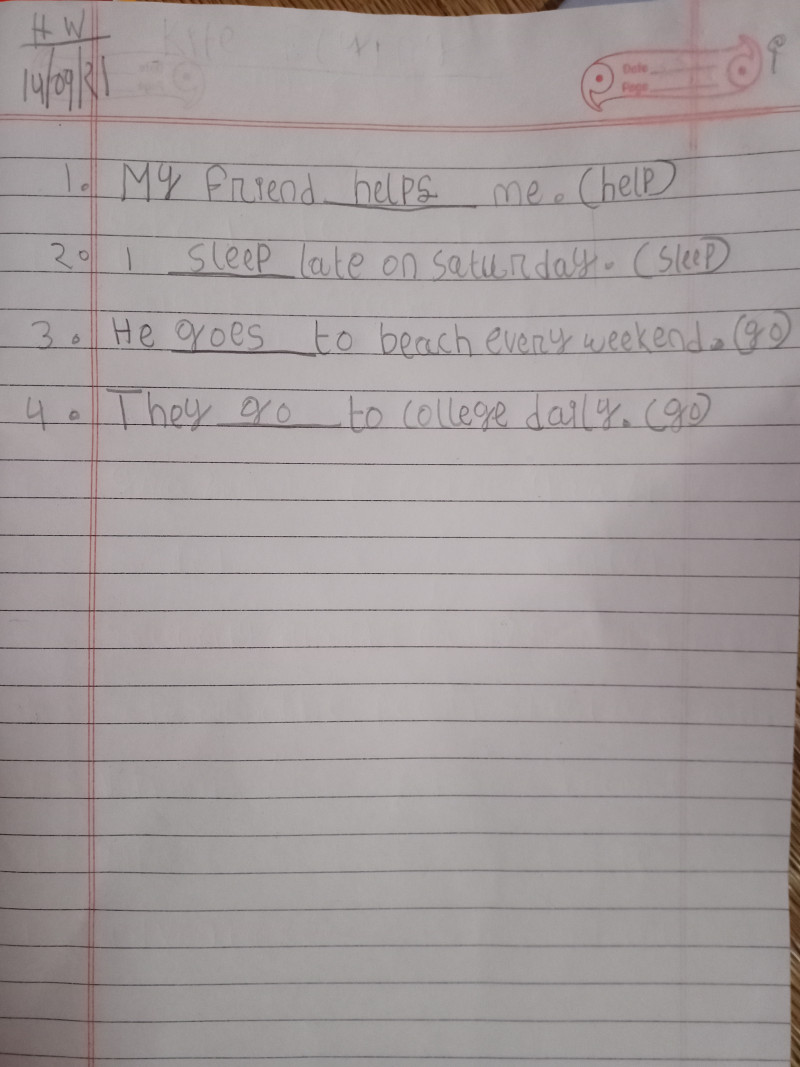 H W
14/09/21
Date
Page
1. My friend helps me. (help)
2. I sleep late on saturday. (sleep)
3. He goes to beach every weekend. (go)
4. They go to college daily. (go)